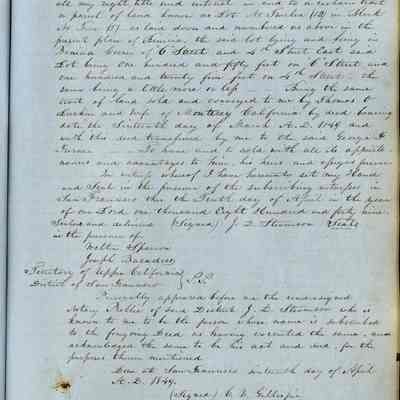 all my right title and interest in and to a certain tract
or parcel of land known as Lot No Twelve (12) in Block
No Five (5) as laid down and numbered as above in the
parent plan of Benicia, the said lot lying and being in
Benicia Corner of C Street and 4th Street East said
Lot being One hundred and fifty feet on C Street and
one hundred and twenty five feet on 4th Street the
same being a little more or less Being the same
tract of land sold and conveyed to me by Thomas O
Larkin and wife of Monterey California by deed bearing
date the Sixteenth day of March A.D. 1849 and
with this deed transferred by me to the said George H
To have and to hold with all its appurte
nances and advantages to him, his heirs and assigns forever
In witness whereof I have hereunto set my Hand
and Seal in the presence of the subscribing witnesses in
San Francisco this the Tenth day of April in the year
of our Lord One thousand Eight Hundred and forty nine
Sealed and delivered (Signed) J. D. Stevenson (Seal)
in the presence of
Walter
Joseph
Territory of Upper California
District of San Francisco S.S.
Personally appeared before me the undersigned
Notary Public of said District J. D. Stevenson who is
known to me to be the person whose name is subscribed
to the foregoing Deed as having executed the same, and
acknowledged the same to be his act and deed, for the
purposes therein mentioned
Done at San Francisco day of April
A.D. 1849.
(Signed) C. V. Gillespie